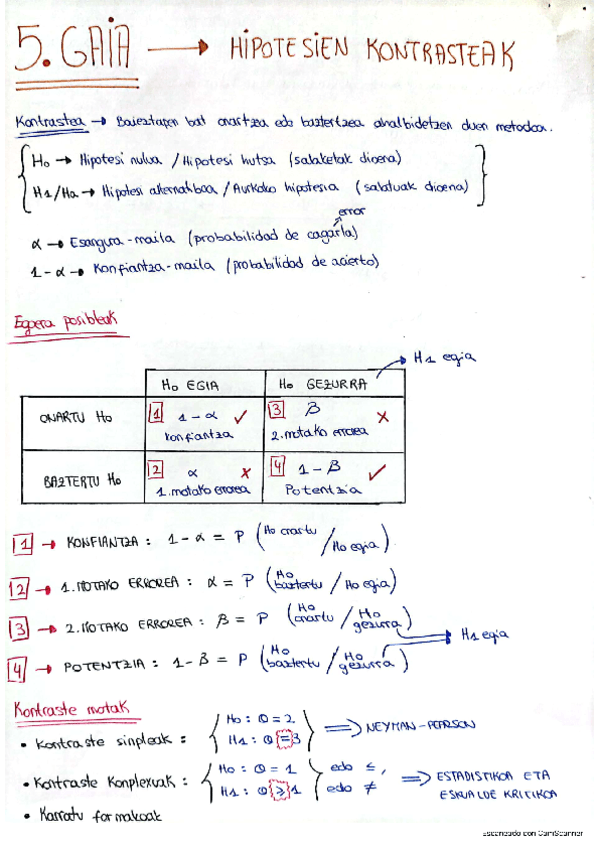 5. GAIA → HIPOTESIEN KONTRASTEAK
Kontrastea → Baieztapen bat onartzea edo baztertzea ahalbidetzen duen metodoa.
H₀ → Hipotesi nulua / Hipotesi hutsa (salaketak dioena)
H1/Ha → Hipotesi alternatiboa / Aurkako hipotesia (salatuak dioena)
error
α → Esangura-maila (probabilidad de cagarla)
1-α → Konfiantza-maila (probabilidad de acierto)
Egoera posibleak
→ H1 egia
H₀ EGIA H₀ GEZURRA
ONARTU H₀ 1 1-α ✓ 3 β X
Konfiantza 2.motako errorea
BAZTERTU H₀ 2 α X 4 1-β ✓
1.motako errorea Potentzia
1 → KONFIANTZA: 1-α = P (H₀ onartu / H₀ egia)
2 → 1.MOTAKO ERROREA: α = P (H₀ baztertu / H₀ egia)
3 → 2.MOTAKO ERROREA: β = P (H₀ onartu / H₀ gezurra)
→ H1 egia
4 → POTENTZIA: 1-β = P (H₀ baztertu / H₀ gezurra)
Kontraste motak
• Kontraste sinpleak: { H₀: θ = 2 } ⇒ NEYMAN-PEARSON
H1: θ = 3
• Kontraste Konplexuak: { H₀: θ = 1 } edo ≤, ⇒ ESTADISTIKOA ETA
H1: θ ≥ 1 edo ≠ ESKUALDE KRITIKOA
• Karratu formakoak
Escaneado con CamScanner